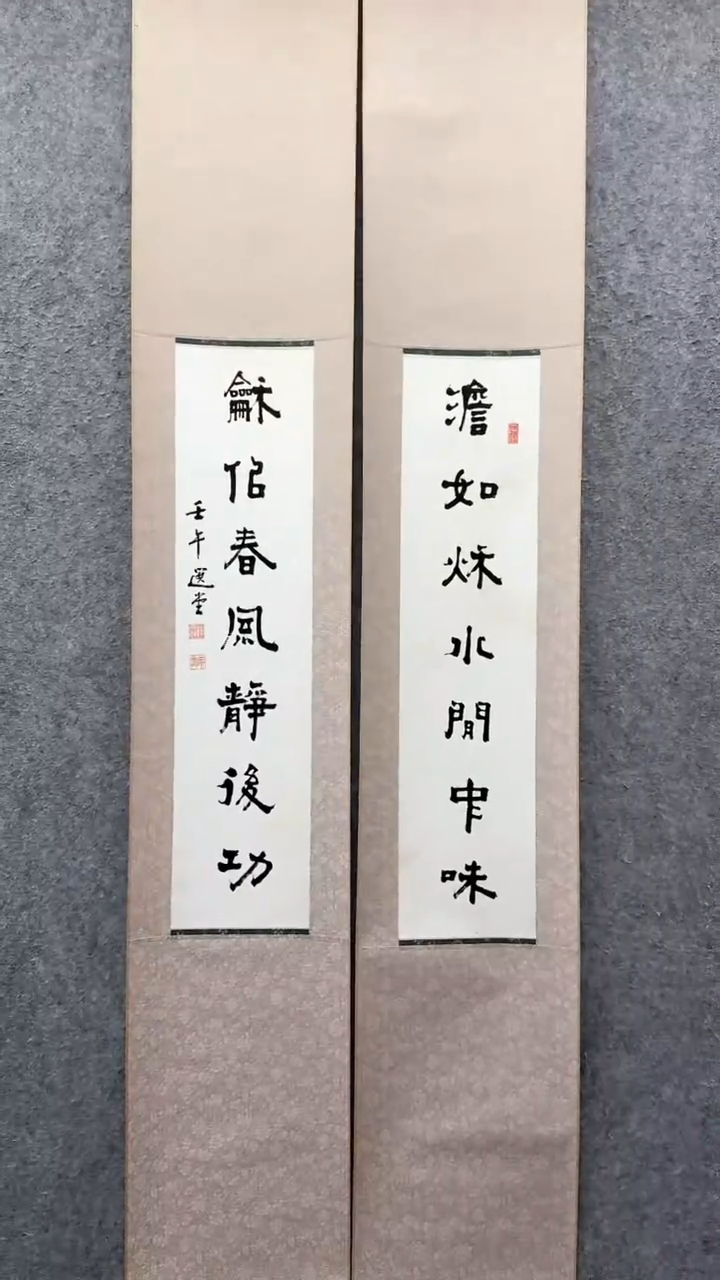 澹如秌水閒中味
龢佀春風靜後功
壬午選堂